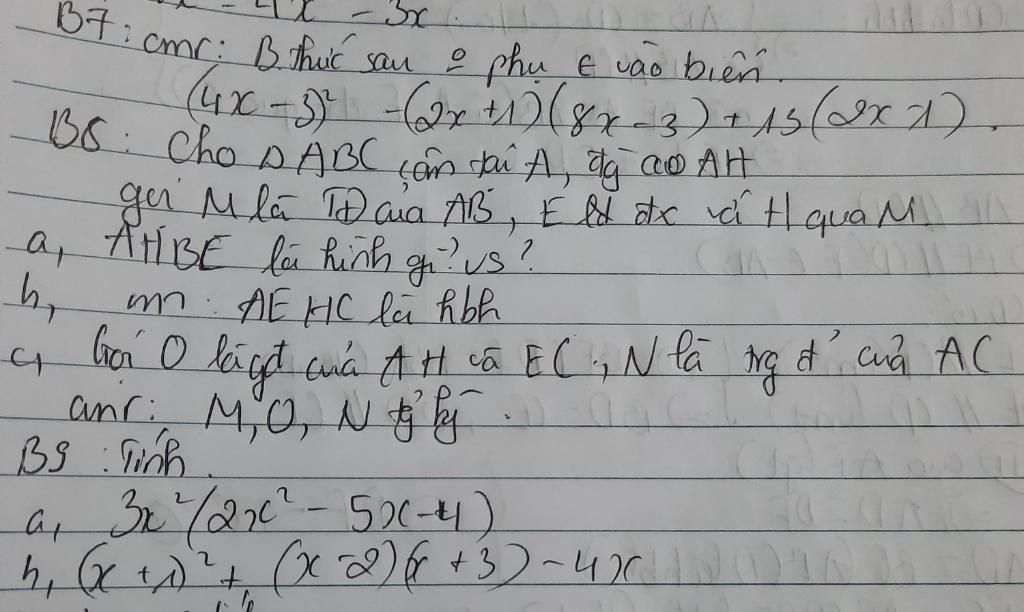 - 4x - 3x.
B7: cmr: B.thức sau ko phụ ∈ vào biến.
(4x - 3)² - (2x + 1)(8x - 3) + 13(2x - 1).
B8: Cho △ABC cân tại A, đg cao AH
gọi M là TĐ của AB, E là đx với H qua M
a, AHBE là hình gì? vs?
b, cm: AEHC là hbh
c, Gọi O là gđ của AH và EC; N là trg đ' của AC
cmr: M, O, N thẳng hàng.
B9: Tính.
a, 3x²(2x² - 5x - 4)
b, (x + 1)² + (x - 2)(x + 3) - 4x